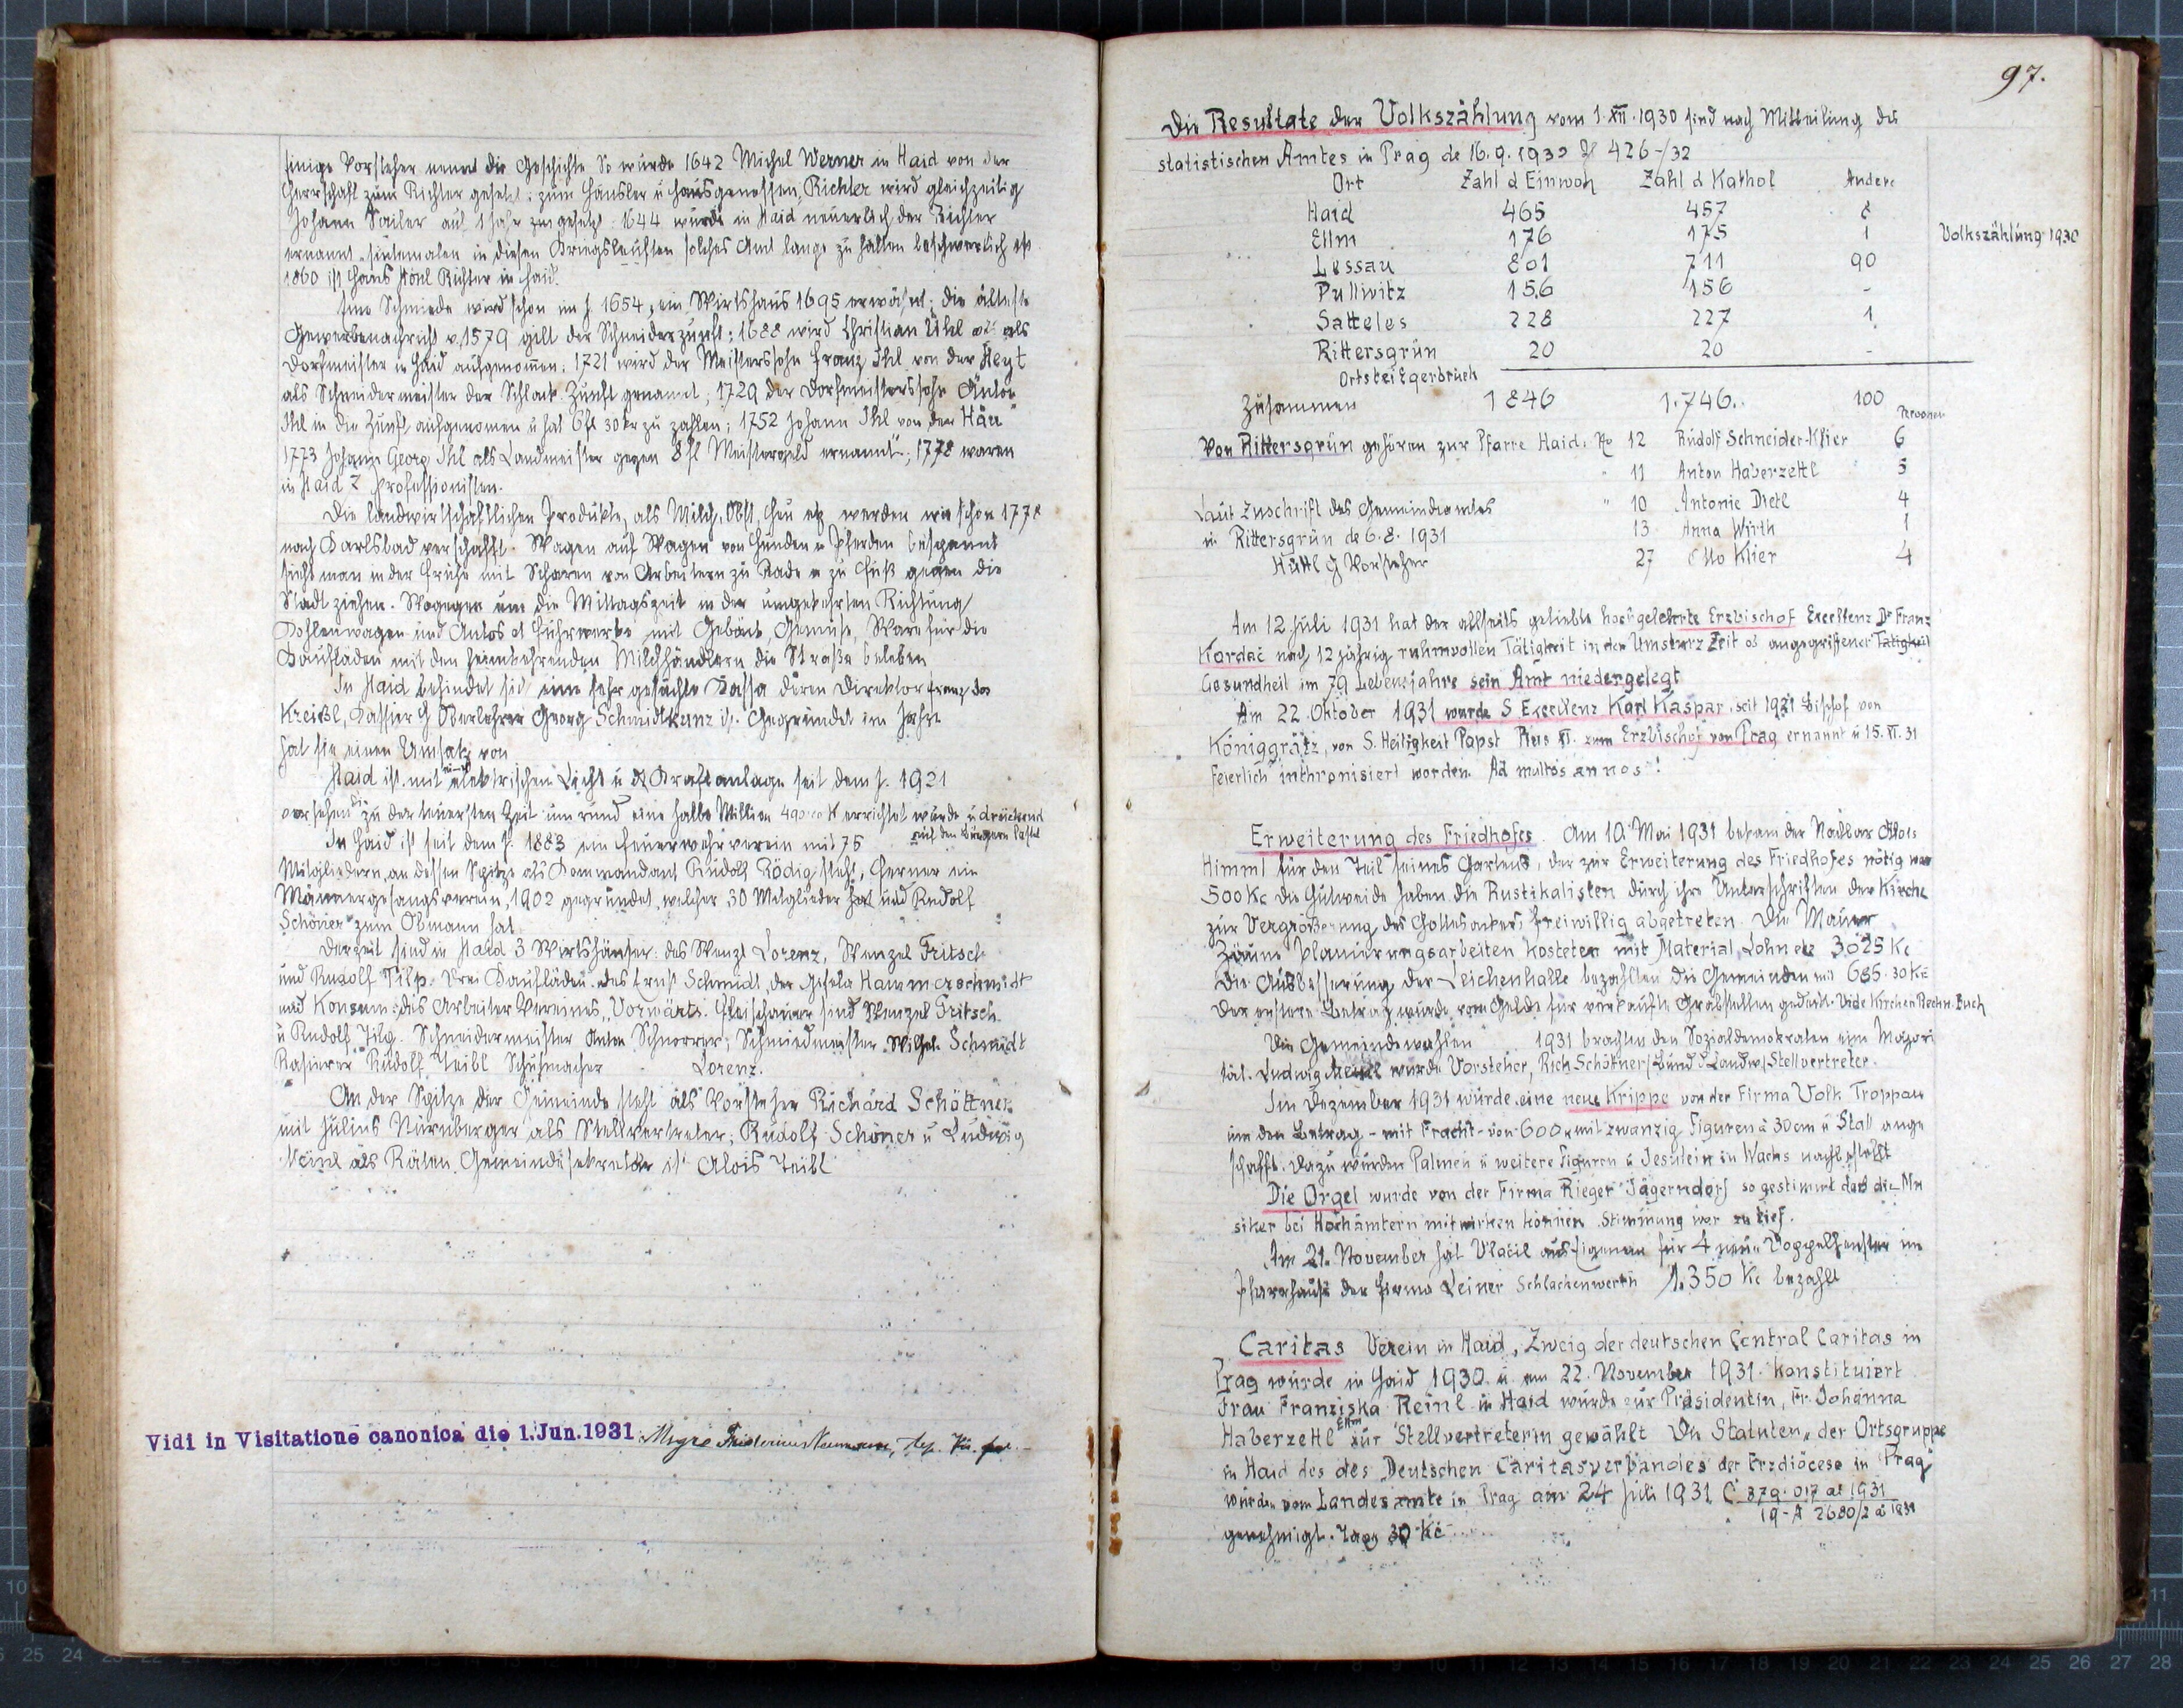 einige Vorsteher nennt die Geschichte So wurde 1642 Michel Werner in Haid von der
Herrschaft zum Richter gesetzt; zum Häusler u Hausgenossen, Richter wird gleichzeitig
Johann Sailer auf 1 Jahr 1644 wurde in Haid neuerlich der Richter
ernannt, sintemalen in diesen Kriegsläuften solches Amt lange zu halten beschwerlich ist
1860 ist Hans Richter in Haid.
Eine Schmiede wird schon im J 1654, ein Wirtshaus 1695 erwähnt; die älteste
Gewerbenachricht v. 1579 gilt der Schneiderzunft; 1688 wird Christian Uhl als
Dorfmeister in Haid aufgenommen; 1721 wird der Meisterssohn Franz Ihl von der Heyt
als Schneidermeister der Schlack. Zunft genannt; 1729 der Dorfmeisterssohn Anton
Ihl in die Zunft aufgenomen u hat 6 fl 30 kr zu zahlen; 1752 Johann Ihl von der
1773 Johann Georg Ihl als Landmeister gegen 8 fl Meistergeld ernannt"; 1778 waren
in Haid 7 Professionisten.
Die landwirtschaftlichen Produkte, als Milch, Obst, Heu etz werden wie schon 1778
nach Karlsbad verschafft. Wagen auf Wagen von Hunden u Pferden bespannt
sieht man in der Frühe mit Scharen von Arbeitern zu Rade u zu Fuß gegen die
Stadt ziehen. Wogegen um die Mittagszeit in der umgekehrten Richtung
Kohlenwagen und Autos Fuhrwerke mit Gebäck, Gemüse, Ware für die
Kaufläden mit den heimkehrenden Milchhändlern die Straße beleben
In Haid befindet sich eine sehr gesuchte Kassa deren Direktor Franz Jos
Kreißl, Kassier H Oberlehrer Georg Schmidtkunz ist. Gegründet im Jahre
hat sie einen Umsatz von
Haid ist mit elektrischen Licht u Kraftanlage seit dem J. 1921
versehen die zu der teuersten Zeit um rund eine halbe Million K errichtet wurde u drückend
auf den Bürgern lastet
In Haid ist seit dem J. 1883 ein Feuerwehrverein mit 75
Mitgliedern, an dessen Spitze als Kommandant Rudolf Rödig steht, ferner ein
Männergesangsverein, 1902 gegründet, welcher 30 Mitglieder hat und Rudolf
Schöner zum Obmann hat.
Derzeit sind in Haid 3 Wirtshäuser: des Wenzl Lorenz, Wenzel Fritsch
und Rudolf Tilp. Drei Kaufläden: des Ernst Schmidt, der Gisela Hammerschmidt
und Konsum: des Arbeiter Vereines „Vorwärts. Fleischauer sind Wenzel Fritsch
u Rudolf Tilp. Schneidermeister Anton Schnorrer; Schmiedmeister Wilhel. Schmidt
Rasierer Rudolf Teibl Schuhmacher Lorenz.
An der Spitze der Gemeinde steht als Vorsteher Richard Schöttner
mit Julius Nürnberger als Stellvertreter; Rudolf Schöner u Ludwig
Meinl als Räten. Gemeindesekretär ist Alois Teibl
Vidi in Visitatione canonica die 1. Jun. 1931.
97.
Die Resultate der Volkszählung vom 1. XII. 1930 sind nach Mitteilung des
statistischen Amtes in Prag de 16. 9. 1932 426-/32
Ort Zahl d Einwoh Zahl d Kathol Andere
Haid 465 457 8
Ellm 176 175 1
Volkszählung 1930
Lessau 801 711 90
Pullwitz 156 156 -
Satteles 228 227 1
Rittersgrün 20 20 -
Ortsteil Egerbrück
Zusammen 1846 1.746. 100
Personen
Von Rittersgrün gehören zur Pfarre Haid: No 12 Rudolf Schneider-Klier 6
" 11 Anton Haberzettl 5
Laut Zuschrift des Gemeindeamtes " 10 Antonie Dietl 4
in Rittersgrün de 6. 8. 1931 13 Anna Wirth 1
Hüttl G Vorsteher 27 Otto Klier 4
Am 12 Juli 1931 hat der allseits geliebte hochgelehrte Erzbischof Excellenz Dr Franz
Kordač nach 12 jährig ruhmvollen Tätigkeit in der Umsturz Zeit ob angegriffener Tätigkeit
Gesundheit im 79 Lebensjahre sein Amt niedergelegt
Am 22. Oktober 1931 wurde S Excellenz Karl Kaspar, seit 1921 Bischof von
Königgrätz, von S. Heiligkeit Papst Pius XI. zum Erzbischof von Prag ernannt u 15. XI. 31
feierlich inthronisiert worden. Ad multos annos!
Erweiterung des Friedhofes. Am 10. Mai 1931 bekam der Nachbar Alois
Himml für den Teil seines Gartens, der zur Erweiterung des Friedhofes nötig war
500 Kc Die Hutweide haben die Rustikalisten durch ihre Unterschriften der Kirche
zur Vergrößerung des Gottesackers freiwillig abgetreten. Die Mauer
Zäune Planierungsarbeiten kosteten mit Material, Lohn etc 3025 Kc
Die Ausbesserung der Leichenhalle bezahlten die Gemeinden mit 685.30 Kč
Der erstere Betrag wurde vom Gelde für verkaufte Grabstellen gedeckt. Vide Kirchen Rechn. Buch
Die Gemeindewahlen 1931 brachten den Sozialdemokraten eine Majori
tät. Ludwig Meinl wurde Vorsteher, Rich Schöttner (Bund d Landw) Stellvertreter.
Im Dezember 1931 wurde eine neue Krippe von der Firma Volk Troppau
um den Betrag - mit Fracht - von 600 K mit zwanzig Figuren à 30 cm u Stall ange
schafft. Dazu wurden Palmen u weitere Figuren u Jesulein in Wachs nachbestellt
Die Orgel wurde von der Firma Rieger Jägerndorf so gestimmt daß die Mu
siker bei Hochämtern mitwirken können. Stimmung war zu tief.
Am 21. November hat Vlačil aus Eigenem für 4 neue Doppelfenster im
Pfarrhause der Firma Leiner Schlackenwerth 1.350 Kč bezahlt
Caritas Verein in Haid, Zweig der deutschen Central Caritas in
Prag wurde in Haid 1930 u am 22. November 1931 konstituiert
Frau Franziska Reinl in Haid wurde zur Präsidentin, Fr. Johanna
Haberzettl Ellm zur Stellvertreterin gewählt Die Statuten „der Ortsgruppe
in Haid des des Deutschen Caritasverbandes der Erzdiöcese in Prag
wurden vom Landesamte in Prag am 24 Juli 1931 Č 379.017 ai 1931
19-A 2680/2 ai 1931
genehmigt. Taxe 30 Kč